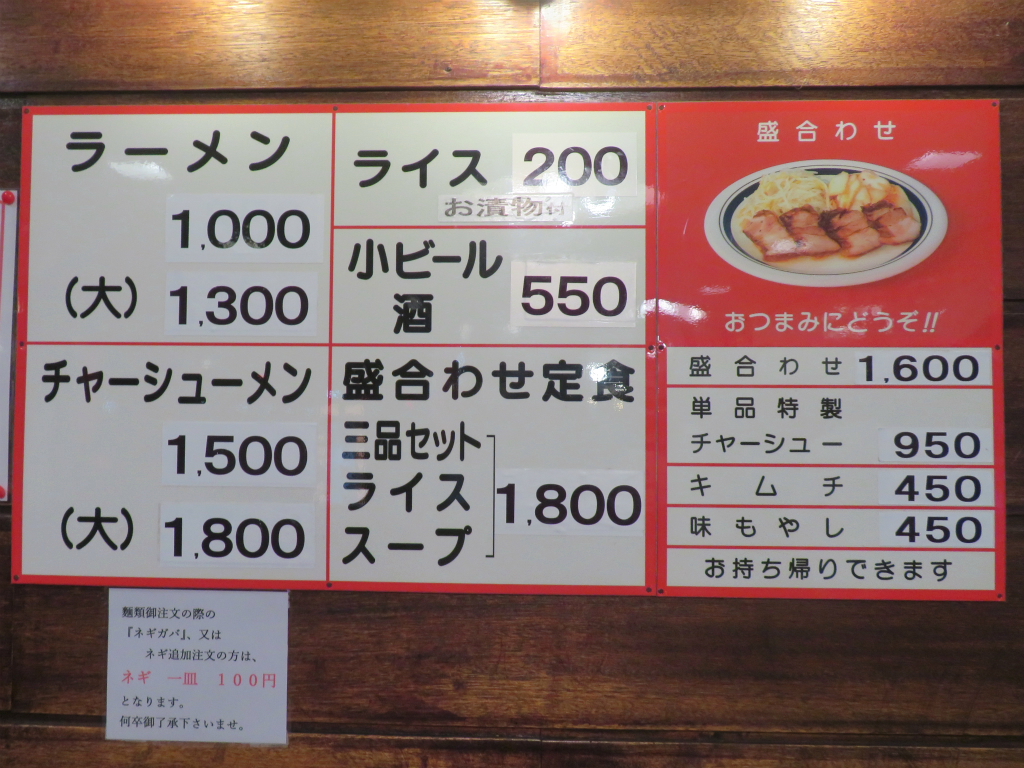 ラーメン
1,000
(大) 1,300
チャーシューメン
1,500
(大) 1,800
ライス 200
お漬物付
小ビール
酒
550
盛合わせ定食
三品セット
ライス
スープ
1,800
盛合わせ
おつまみにどうぞ!!
盛合わせ 1,600
単品特製
チャーシュー 950
キムチ 450
味もやし 450
お持ち帰りできます
麺類御注文の際の
『ネギガバ』、又は
ネギ追加注文の方は、
ネギ 一皿 100円
となります。
何卒御了承下さいませ。